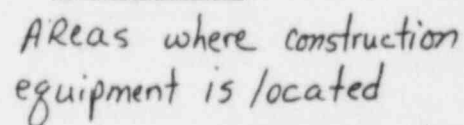 AReas where construction
equipment is located